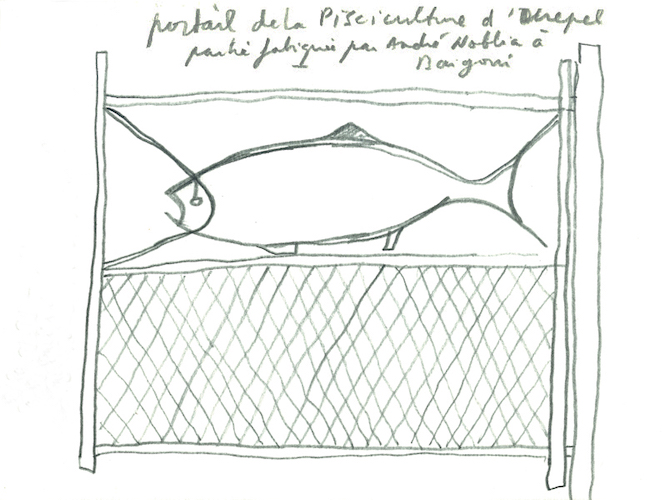 portail de la Pisciculture d'Urepel
partie fabriquée par André Noblia à
Baigorri